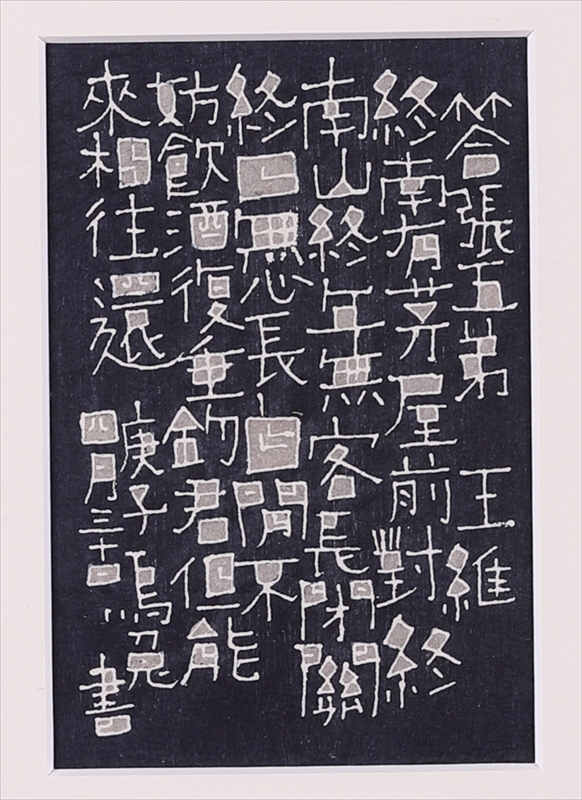 荅張五弟 王維
終南有茅屋前對終
南山終年無客長閉關
終日無心長自閒不
妨飲酒復垂釣君但能
來相往還
庚子
四月三十日
書